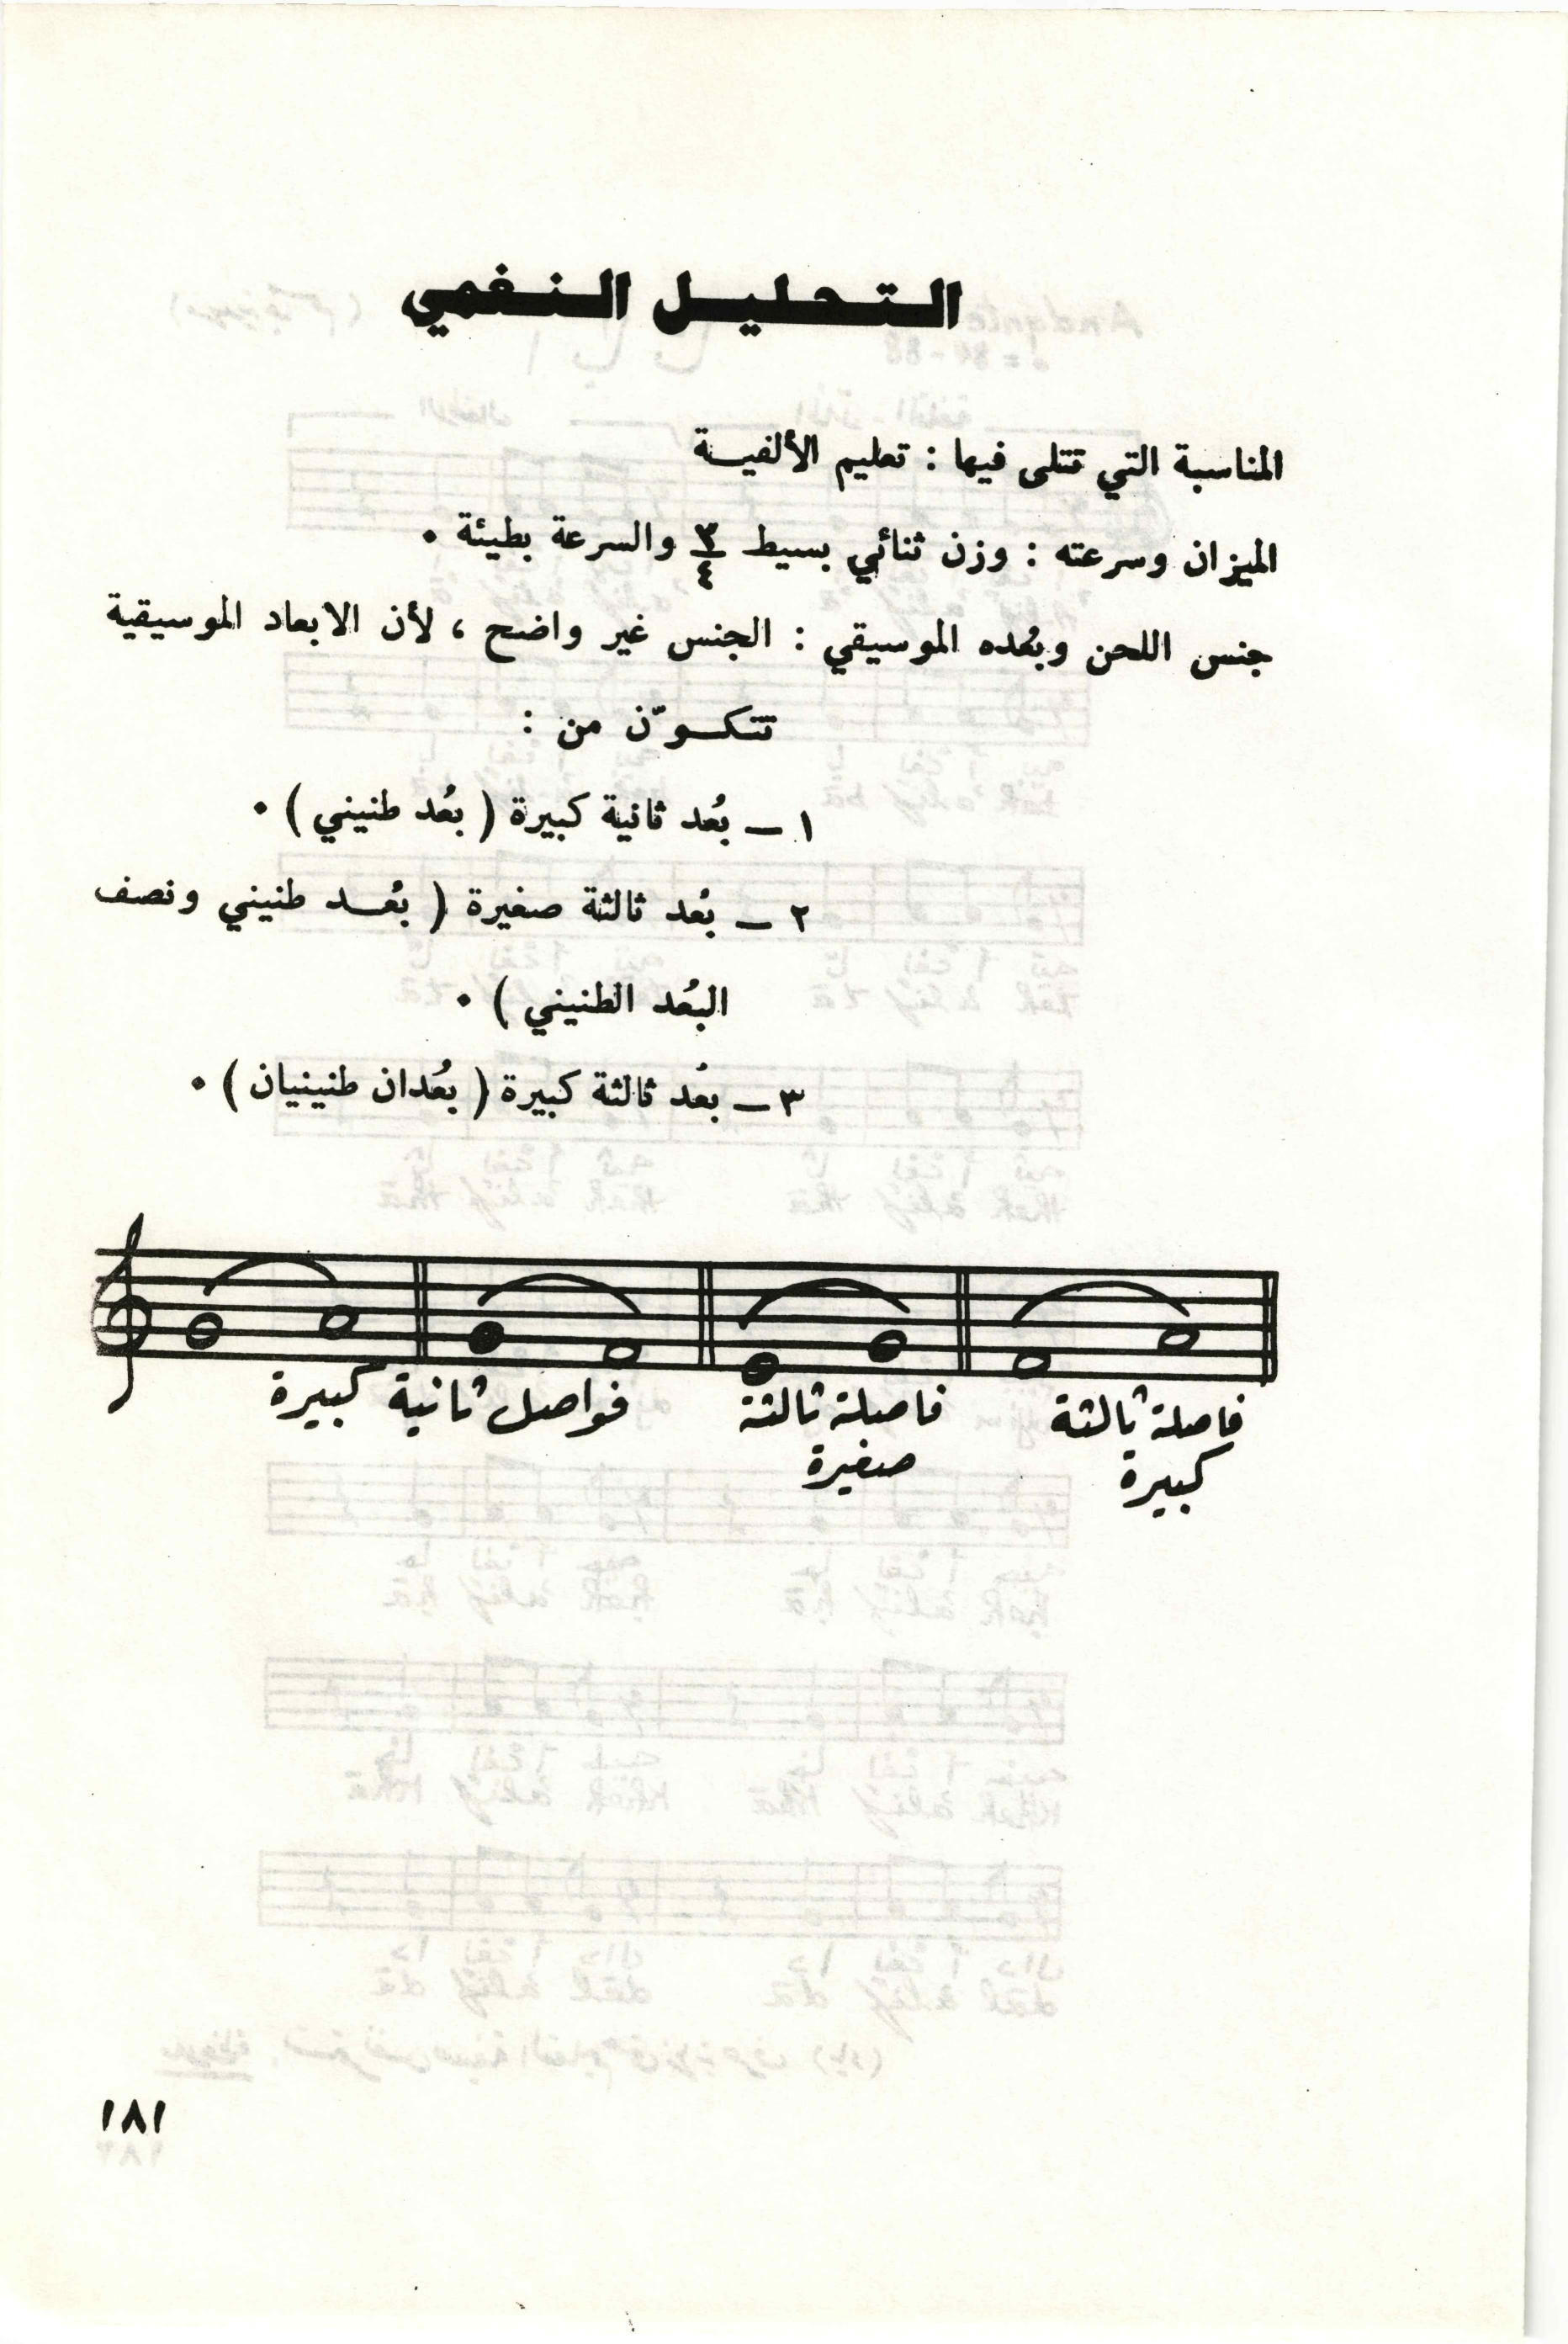 التحليل النغمي
المناسبة التي تتلى فيها : تعليم الألفية
الميزان وسرعته : وزن ثنائي بسيط ٣/٤ والسرعة بطيئة .
جنس اللحن وبُعده الموسيقي : الجنس غير واضح ، لأن الابعاد الموسيقية
تتكوّن من :
١ – بُعد ثانية كبيرة ( بُعد طنيني ) .
٢ – بُعد ثالثة صغيرة ( بُعد طنيني ونصف
البُعد الطنيني ) .
٣ – بُعد ثالثة كبيرة ( بُعدان طنينيان ) .
فواصل ثانية كبيرة
فاصلة ثالثة صغيرة
فاصلة ثالثة كبيرة
١٨١